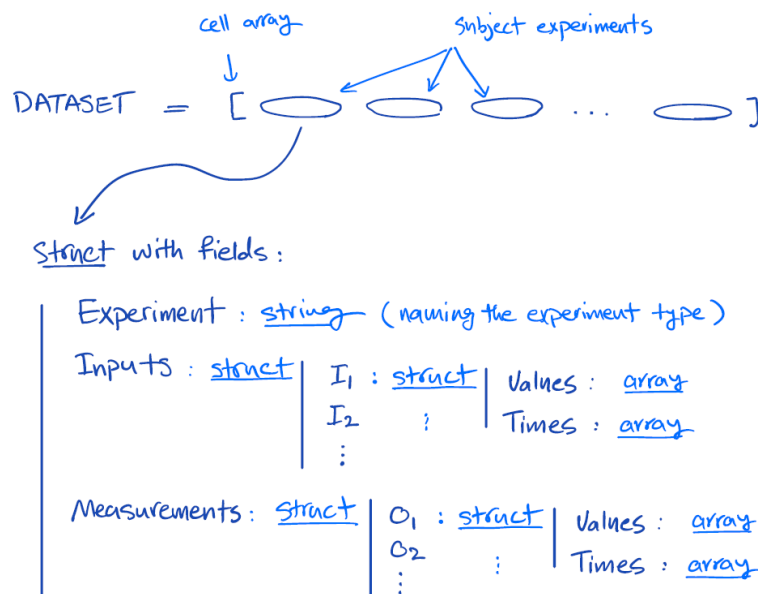 cell array subject experiments
DATASET = [ ... ]
Struct with fields:
Experiment : string (naming the experiment type)
Inputs : struct I₁ : struct Values : array
I₂ ⋮ Times : array
⋮
Measurements : struct O₁ : struct Values : array
O₂ ⋮ Times : array
⋮